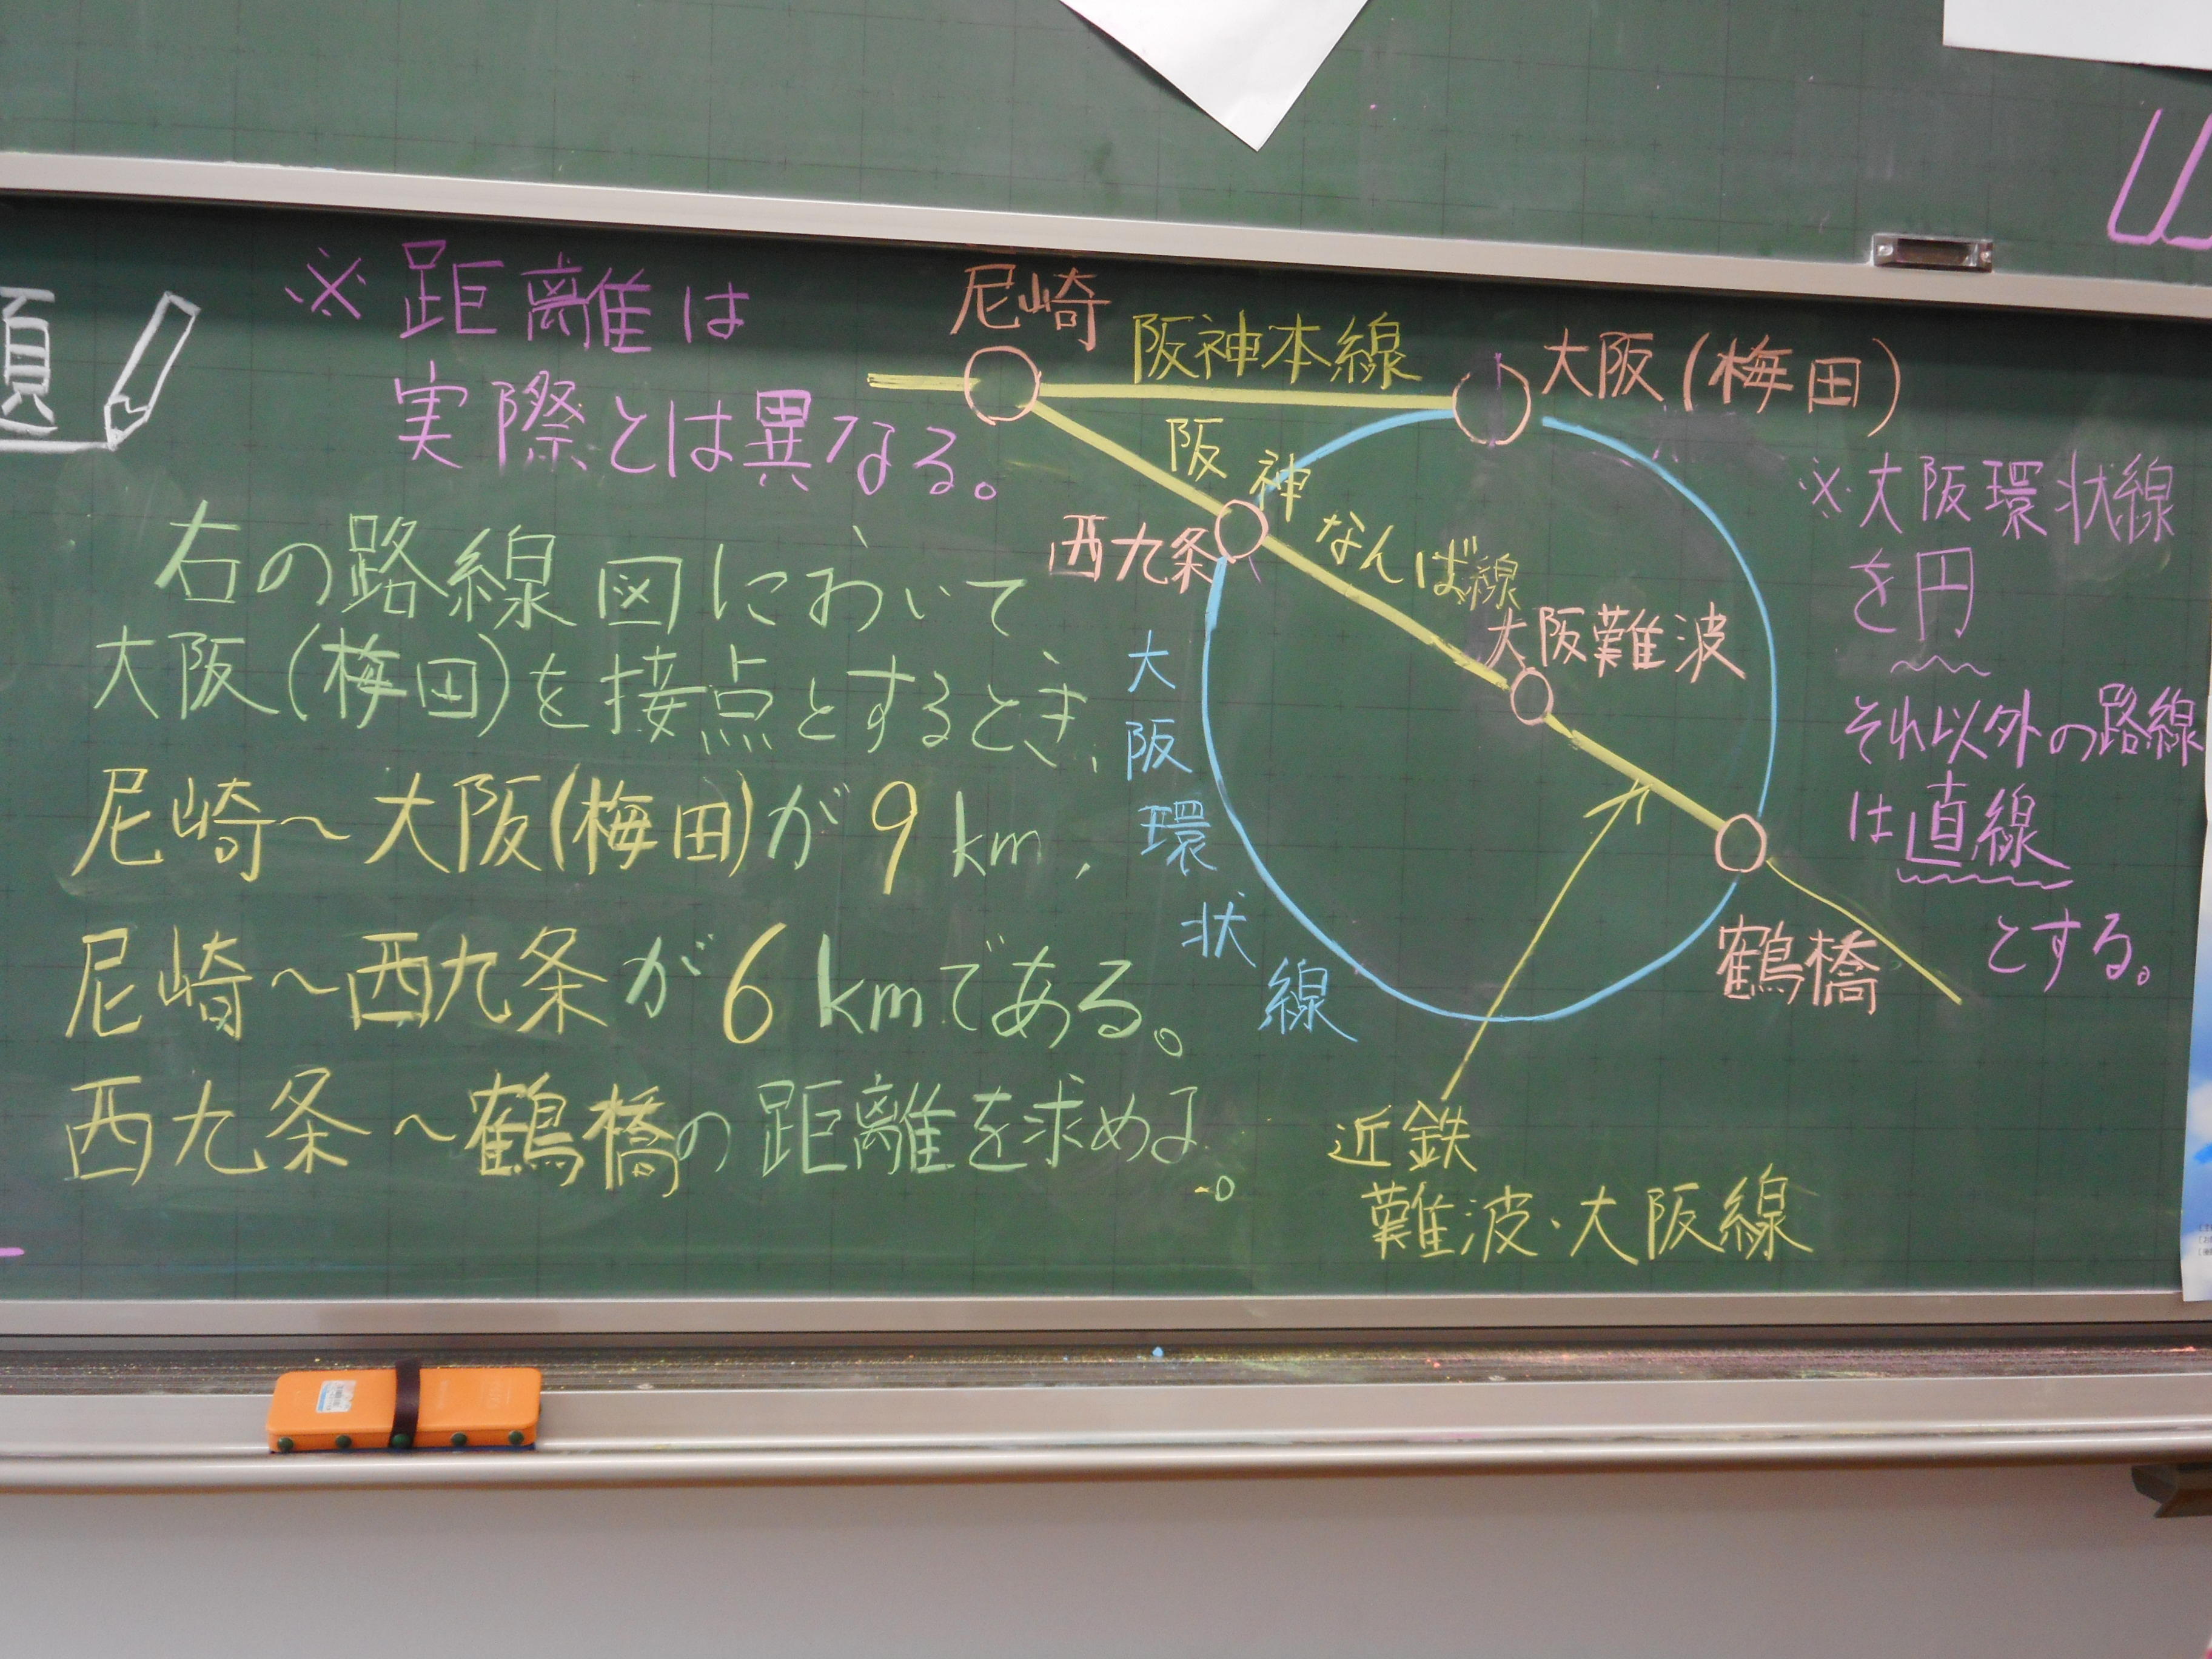 ※距離は
実際とは異なる。
右の路線図において
大阪(梅田)を接点とするとき、
尼崎～大阪(梅田)が9km,
尼崎～西九条が6kmである。
西九条～鶴橋の距離を求めよ。
尼崎
阪神本線
大阪(梅田)
阪神なんば線
西九条
大阪難波
大阪環状線
鶴橋
近鉄
難波・大阪線
※大阪環状線
を円
それ以外の路線
は直線
とする。